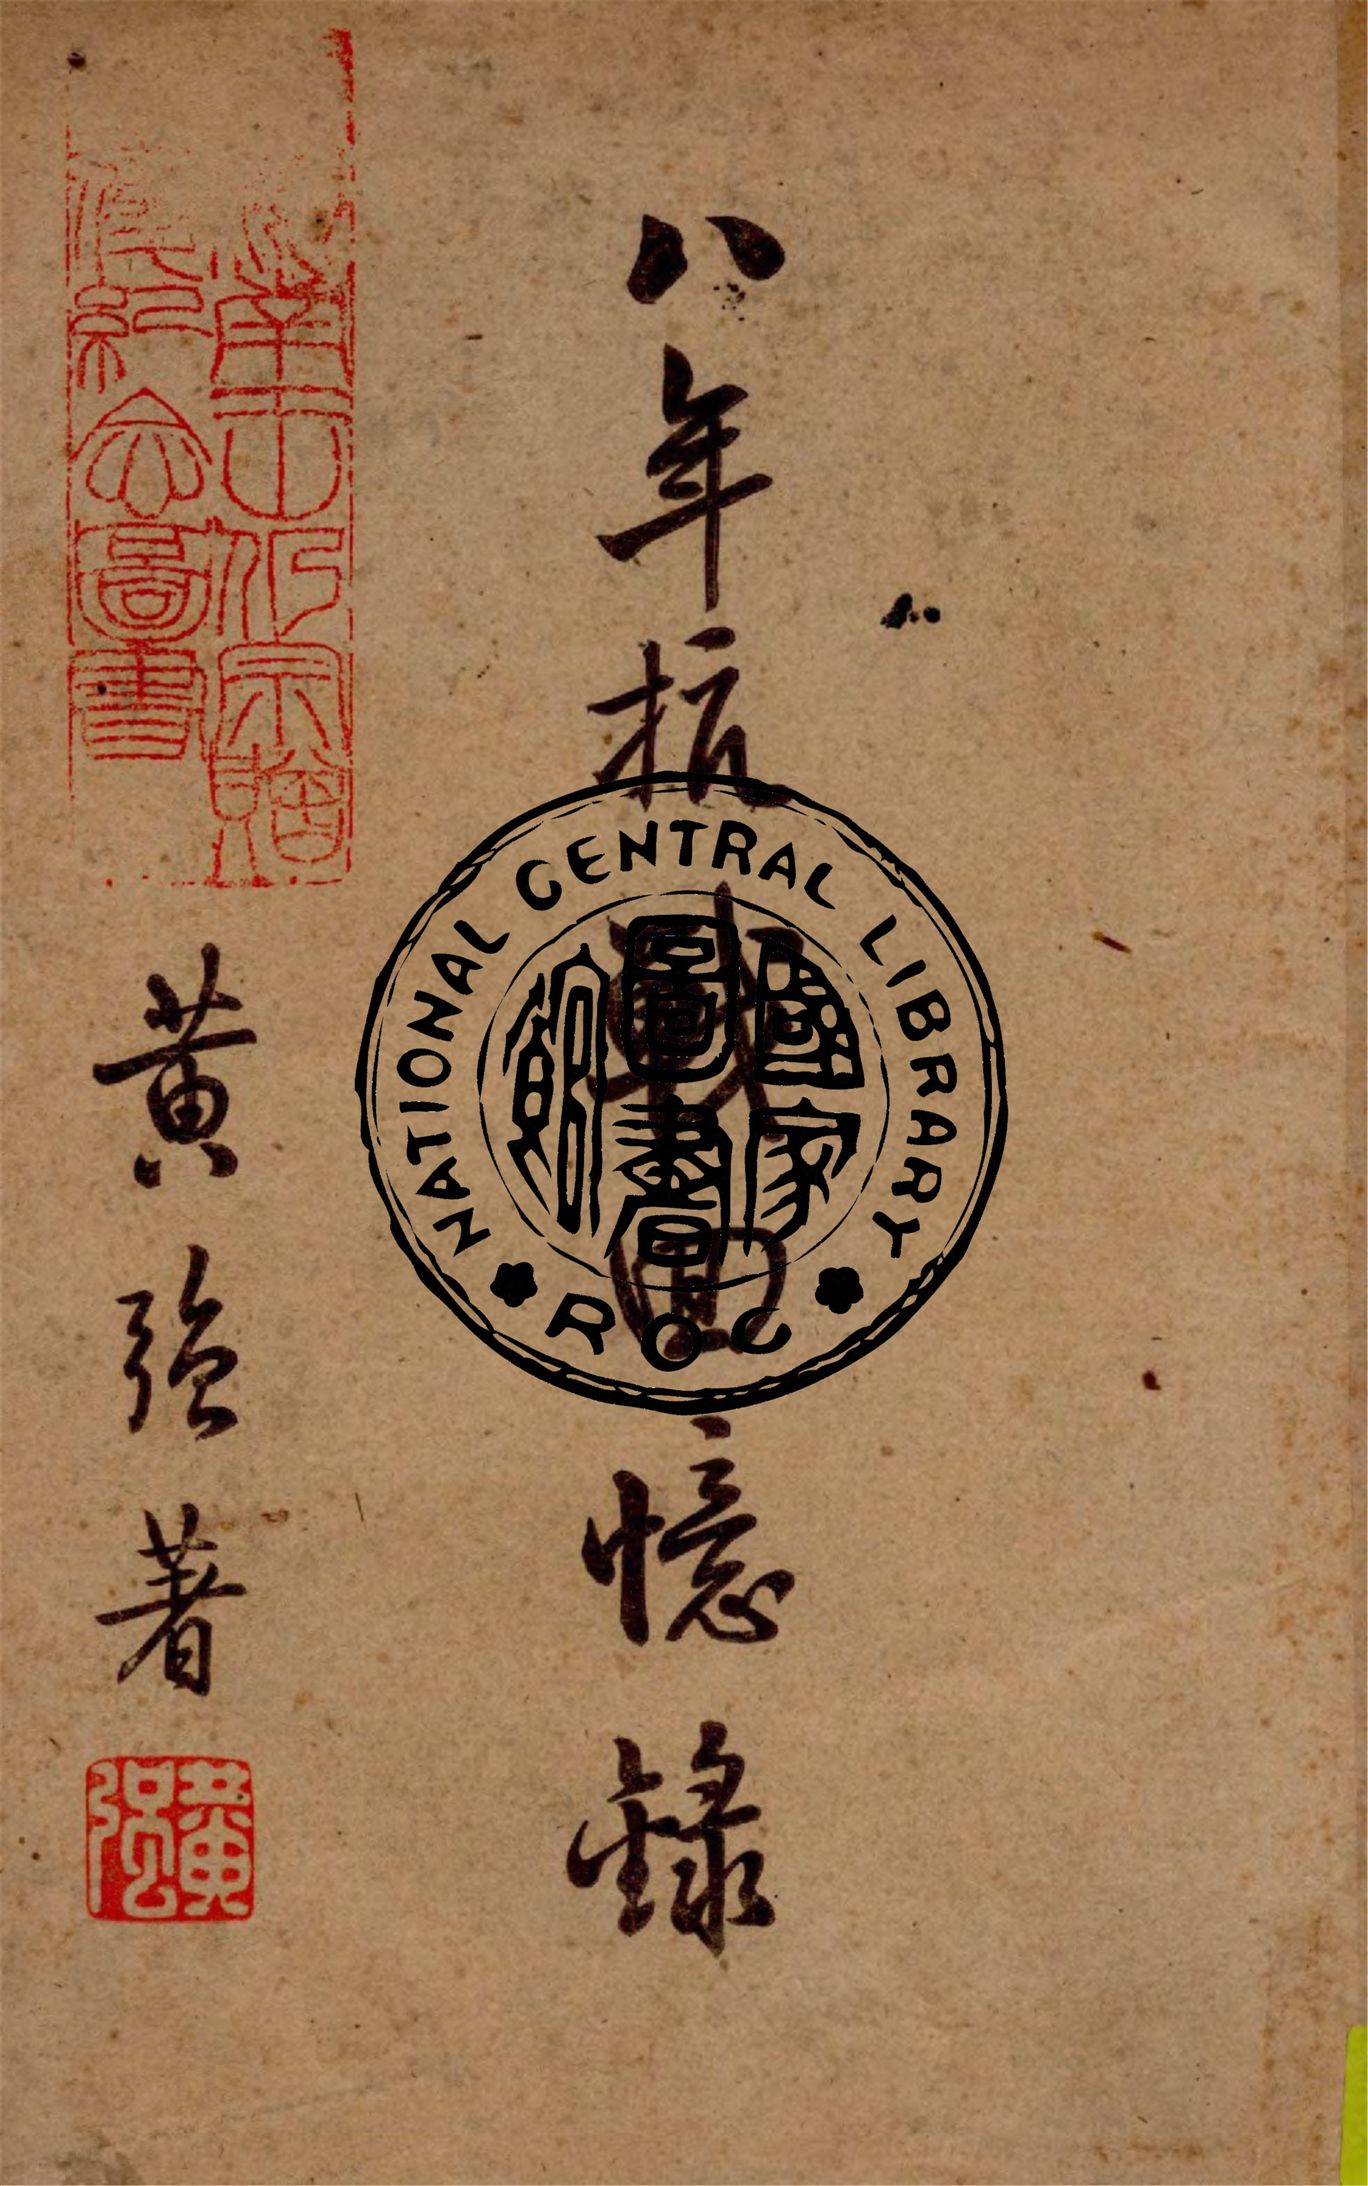 八年抗戰回憶錄
黃強著
黃強
圖書
NATIONAL CENTRAL LIBRARY
ROC
國家圖書館